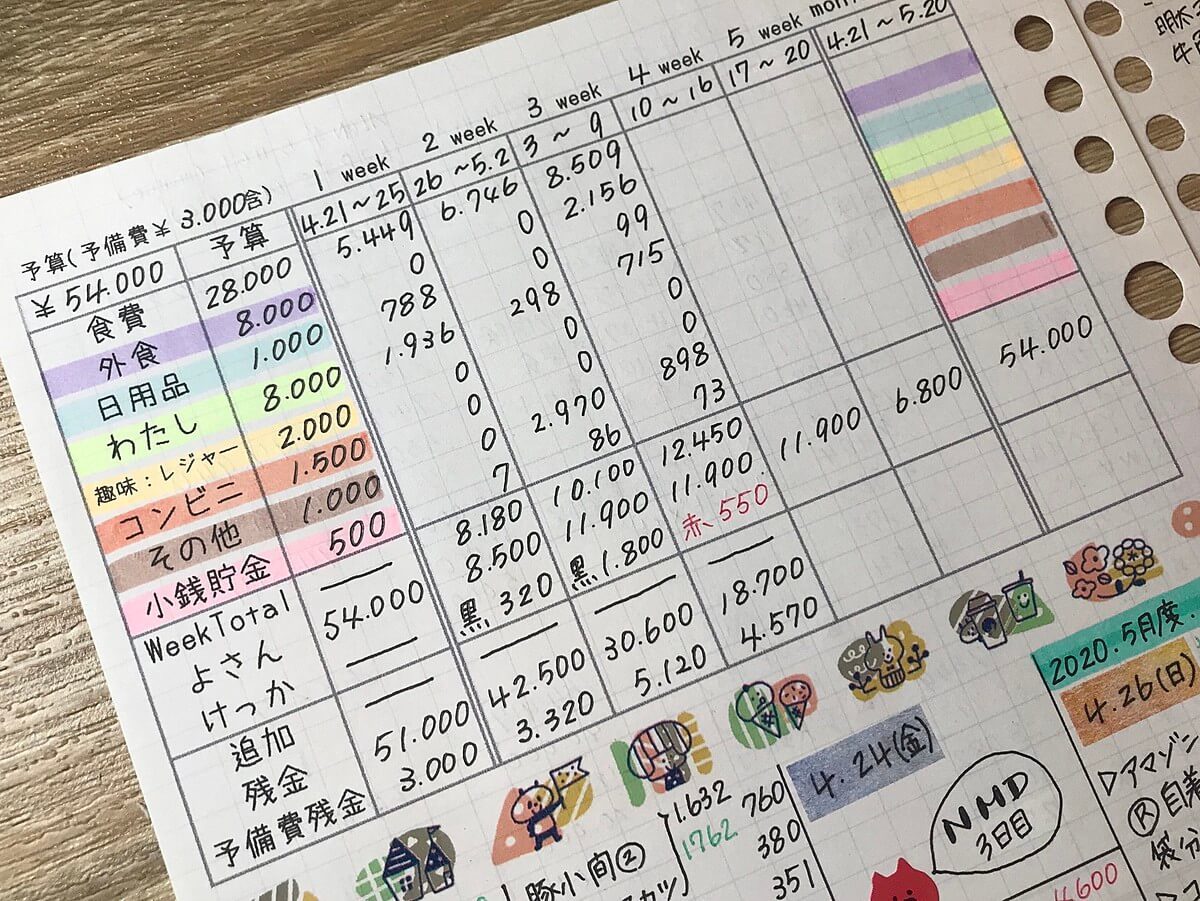 予算(予備費¥3.000含) 1 week 2 week 3 week 4 week 5 week
¥54.000 予算 4.21~25 26~5.2 3~9 10~16 17~20 4.21~5.20
食費 28.000 5.449 6.746 8.509
外食 8.000 0 0 2.156
日用品 1.000 788 0 99
わたし 8.000 1.936 298 715
趣味:レジャー 2.000 0 0 0
コンビニ 1.500 0 0 0
その他 1.000 0 2.970 898
小銭貯金 500 7 86 73
WeekTotal — 8.180 10.100 12.450
よさん 54.000 8.500 11.900 11.900 11.900 6.800 54.000
けっか — 黒320 黒1.800 赤550
追加 — — — —
残金 51.000 42.500 30.600 18.700
予備費残金 3.000 3.320 5.120 4.570
2020.5月度.
4.26(日)
▷アマゾン
4.24(金)
NMD
3日目
4600
1.632 760
1762 380
351
豚小間②